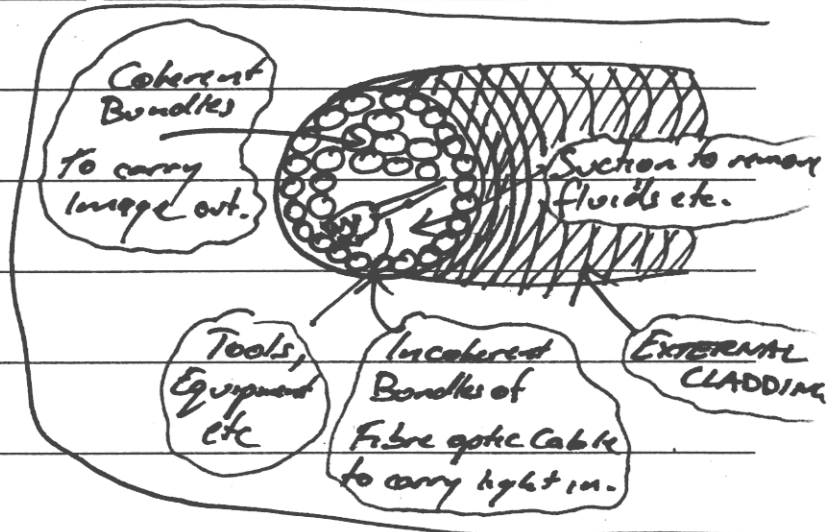 Coherent
Bundles
To carry
Image out.
Suction to remove
fluids etc.
Tools,
Equipment
etc
Incoherent
Bundles of
Fibre optic Cable
to carry light in.
EXTERNAL
CLADDING